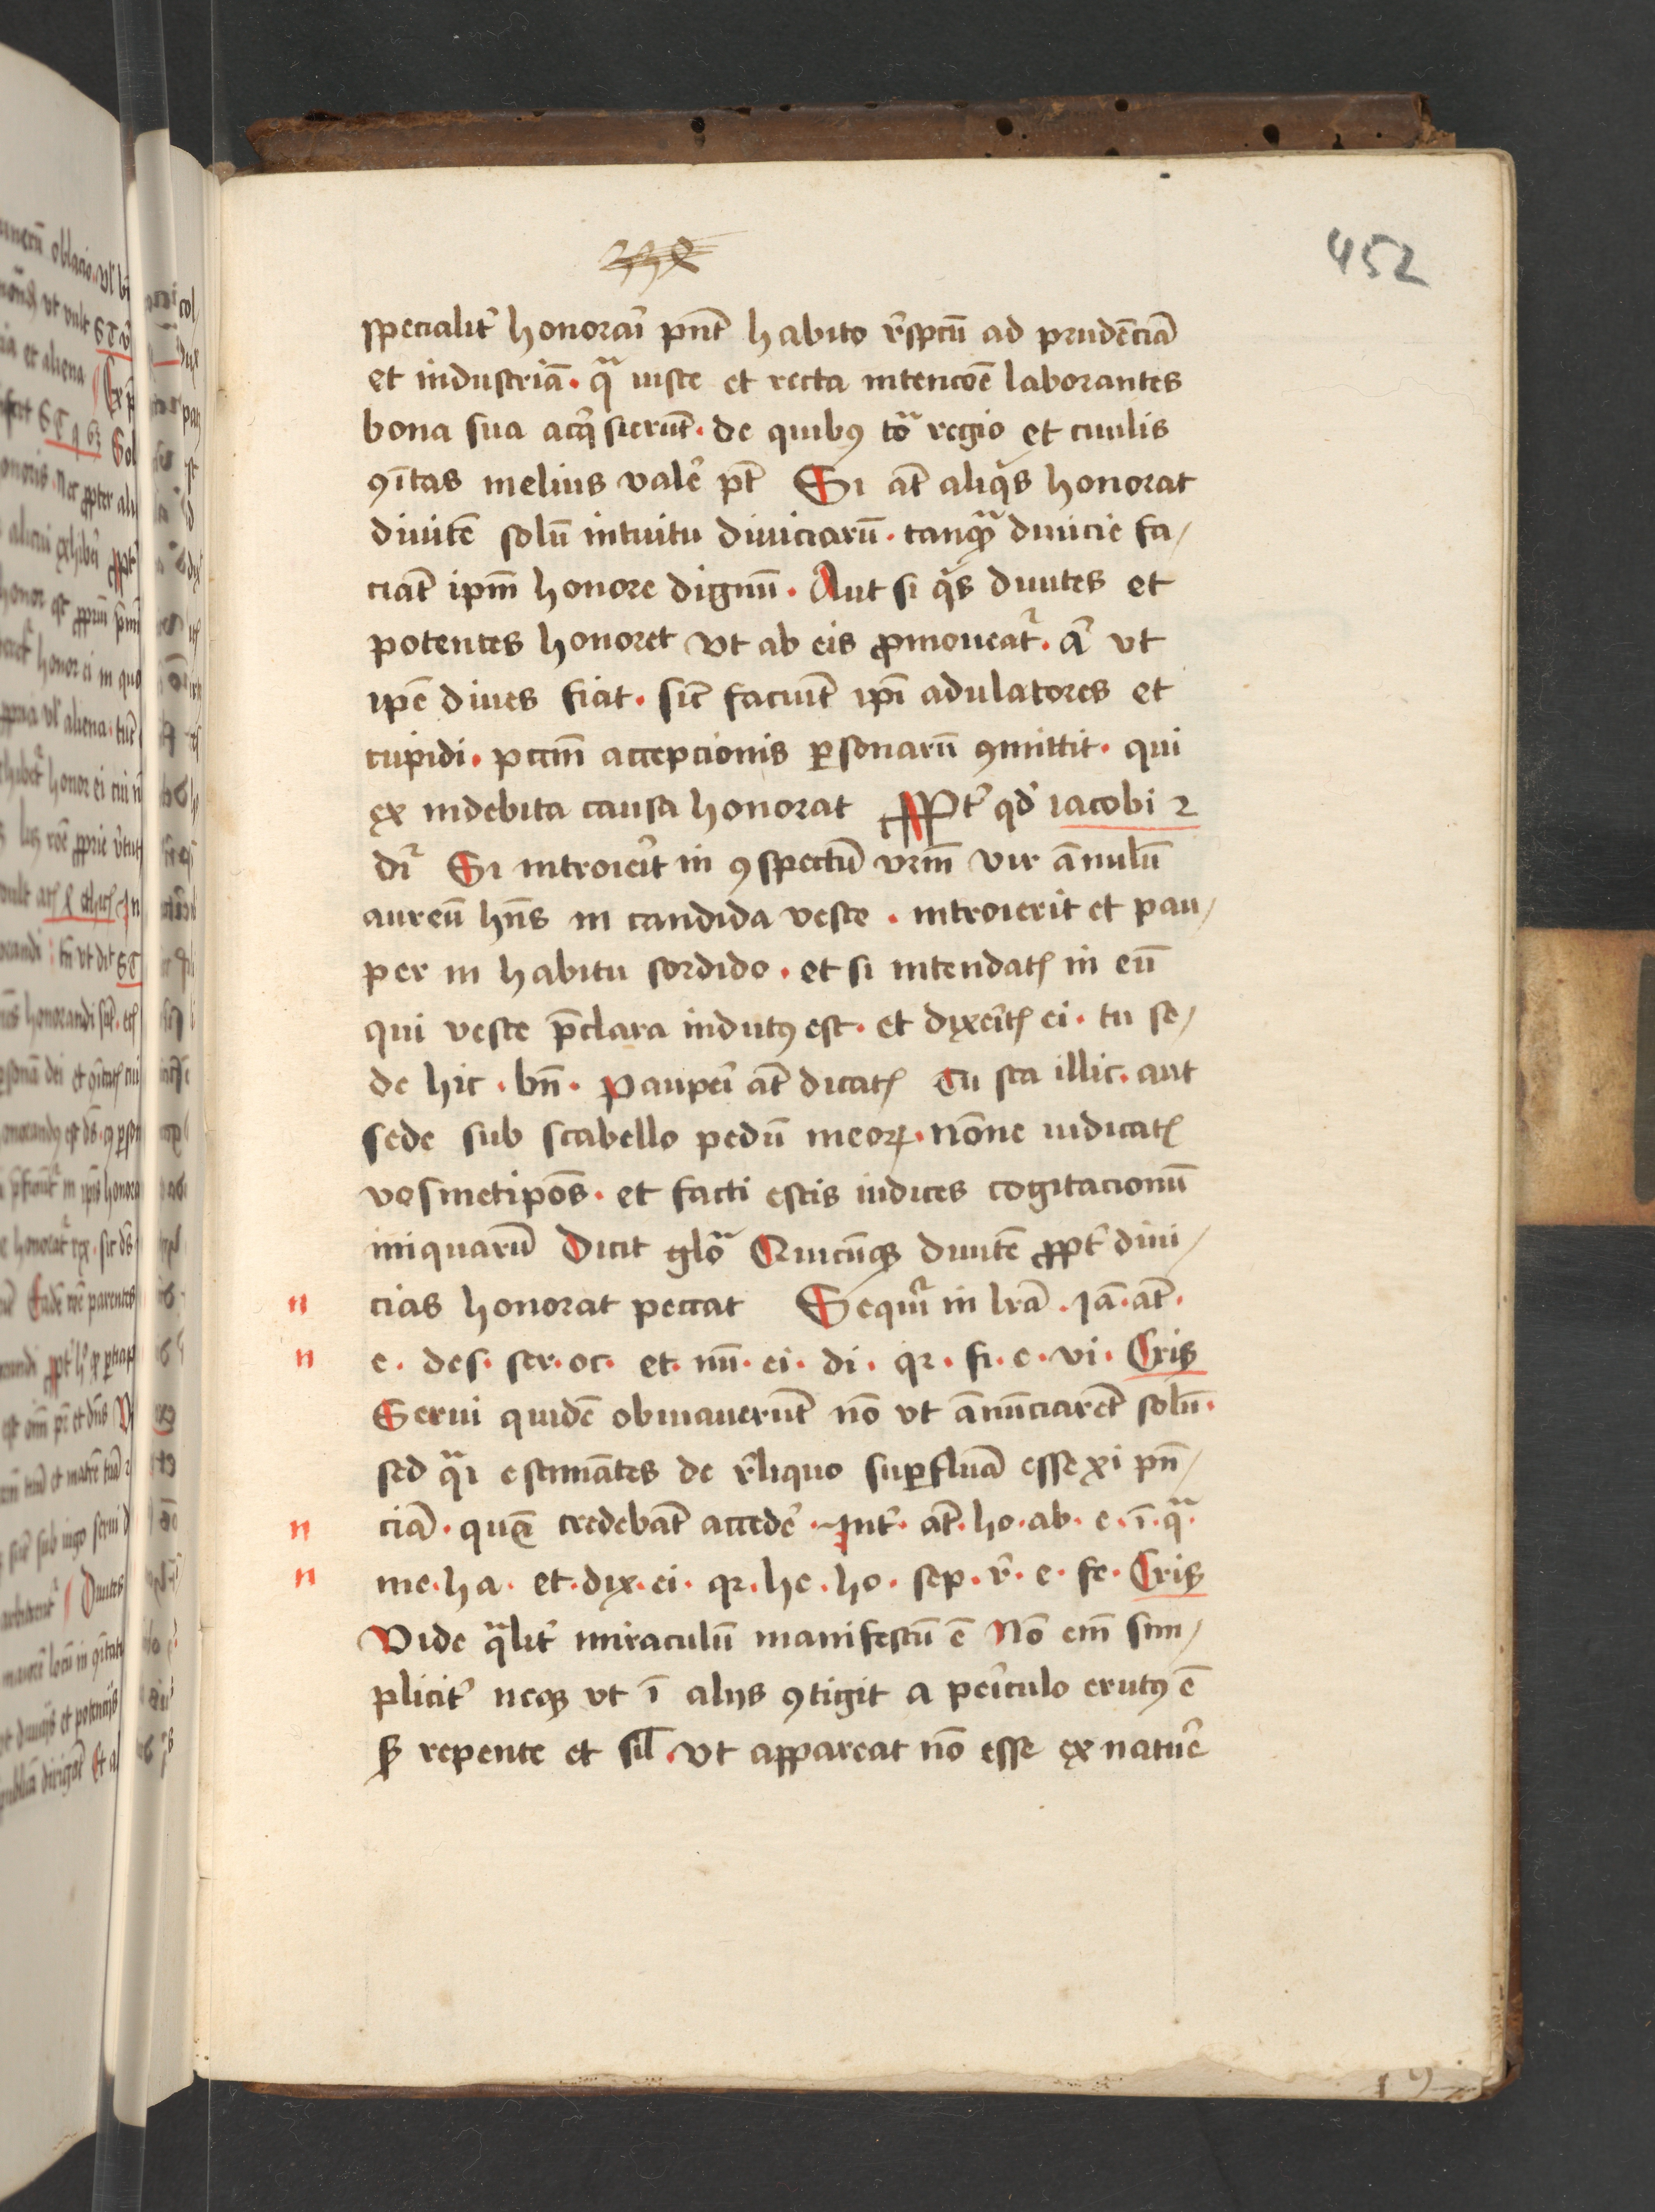 452
specialit᷑ honorāi pñt habito r̄spc̄tū ad prudēciā
et industriā · qᷓ iuste et recta intenc̄oē laborantes
bona sua acq̇sierūt · de quibꝰ tōᷓ regio et ciuilis
ꝯītas melius valē pt̄ Si at̄ aliq̇s honorat
diuitē solū intuitu diuiciarū · tanqᷓ diuicie fa/
ciāt ipm̄ honore dignū · Aut si q̇s diuites et
potentes honoret vt ab eis ꝓmoueat᷑ · a᷑ vt
ip̄e diues fiat · sic̄ faciūt ip̄i adulatores et
cupidi · pcc̄m accepcionis ꝑsonarū ꝯmittit · qui
ex indebita causa honorat Ꝓpt᷑ qd̛ iacobi 2
dr᷑ Si introieīt in ꝯspectū vr̄m vir ānulū
aureū hn̄s in candida veste · introierit et pau/
per in habitu sordido · et si intendatꝭ in eū
qui veste p̄clara indutꝰ est · et dixeītꝭ ei · tu se/
de hic · bn̄ · Paupeī at̄ dicatꝭ Tu sta illic · aut
sede sub scabello pedū meoꝝ · Nōne iudicatꝭ
vosmetip̄os · et facti estis iudices cogitacionū
iniquarū Dicit gloᷓ Quicūqꝫ diuitē ꝓpt᷑ diui/
n cias honorat peccat Sequit᷑ in lr̄a · Iā · at̄ ·
n e · des · ser · oc · et · nū · ei · di · qꝛ · fi · e · vi · Crisꝰ
Serui quidē obuiauerūt nō vt ānūciarēt solū ·
sed qᷓi estimātes de r̄liquo suꝑfluā esse xi pn̄/
n ciā · quā credebāt accedē · Int᷑ · at̄ · ho · ab · e · ī · qᷓ ·
n me · ha · et · dix · ei · qꝛ · he · ho · sep · r̄ · e · fe · Crisꝰ
Vide qᷓlit᷑ miraculū manifestū ē Nō em̄ sim/
plicit᷑ neqꝫ vt ī alijs ꝯtigit a peīculo erutꝰ ē
sꝫ repente et sil̄ · vt appareat nō esse ex natuē